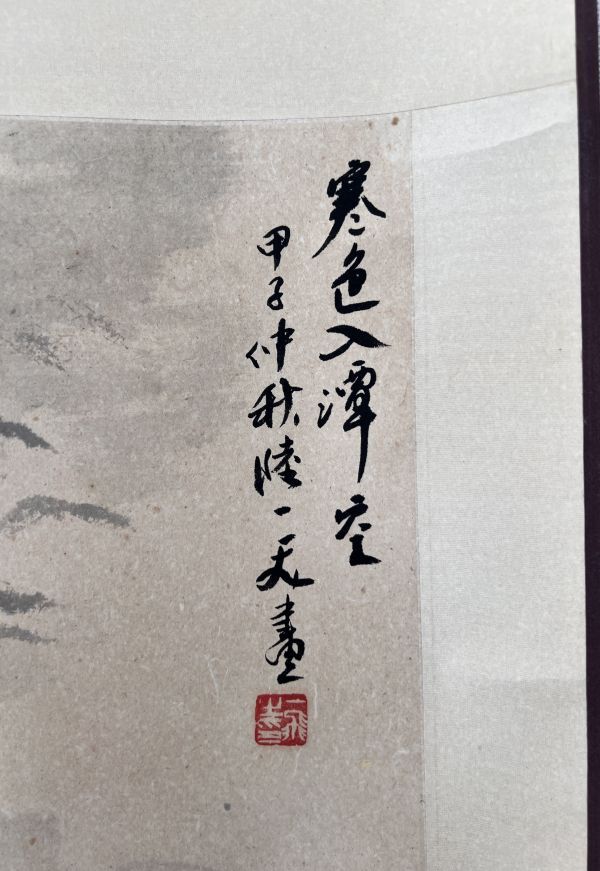 寒色入潭空
甲子仲秋陸一飛畫